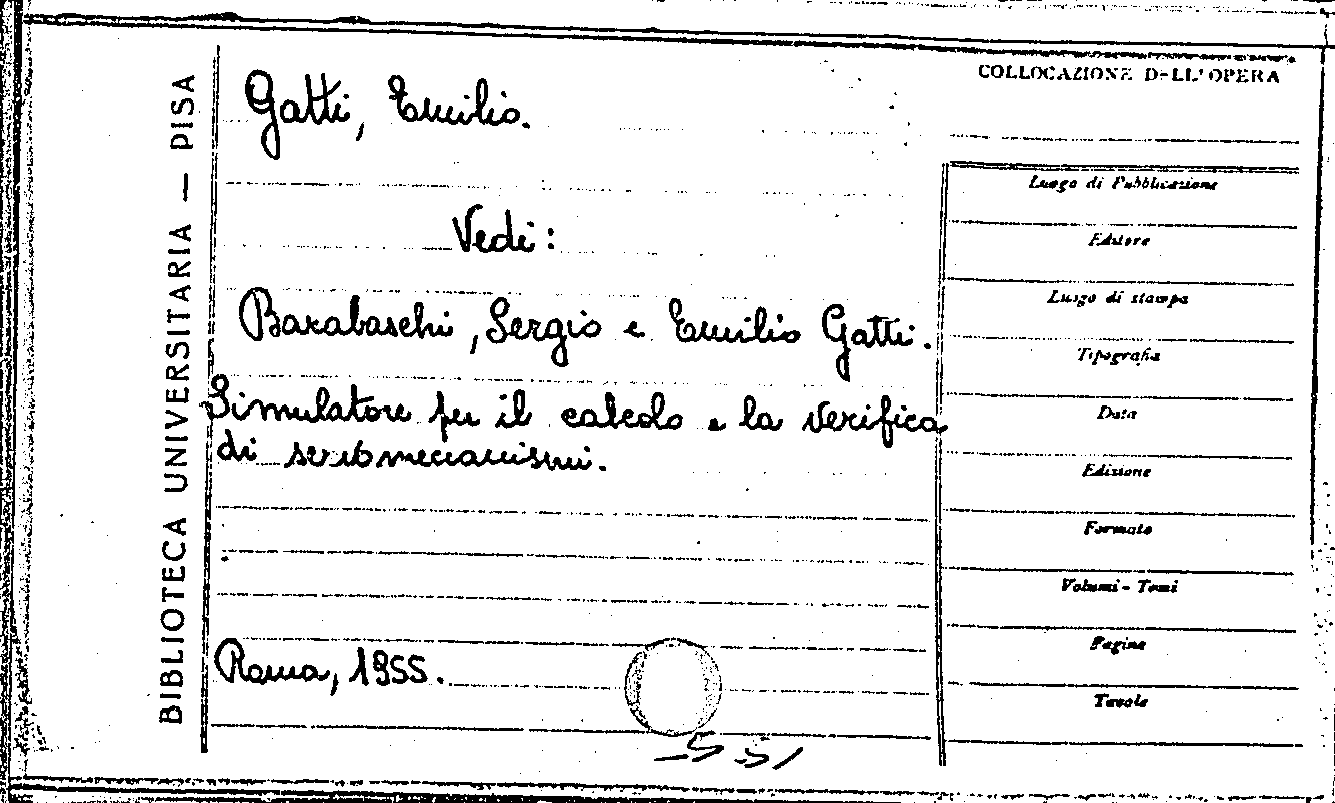 BIBLIOTECA UNIVERSITARIA — PISA
Gatti, Emilio.
Vedi:
Barabaschi, Sergio e Emilio Gatti.
Simulatore per il calcolo e la verifica
di servomeccanismi.
Roma, 1955.
COLLOCAZIONE D-LL'OPERA
Luogo di Pubblicazione
Editore
Luogo di stampa
Tipografia
Data
Edizione
Formato
Volumi - Tomi
Pagine
Tavole